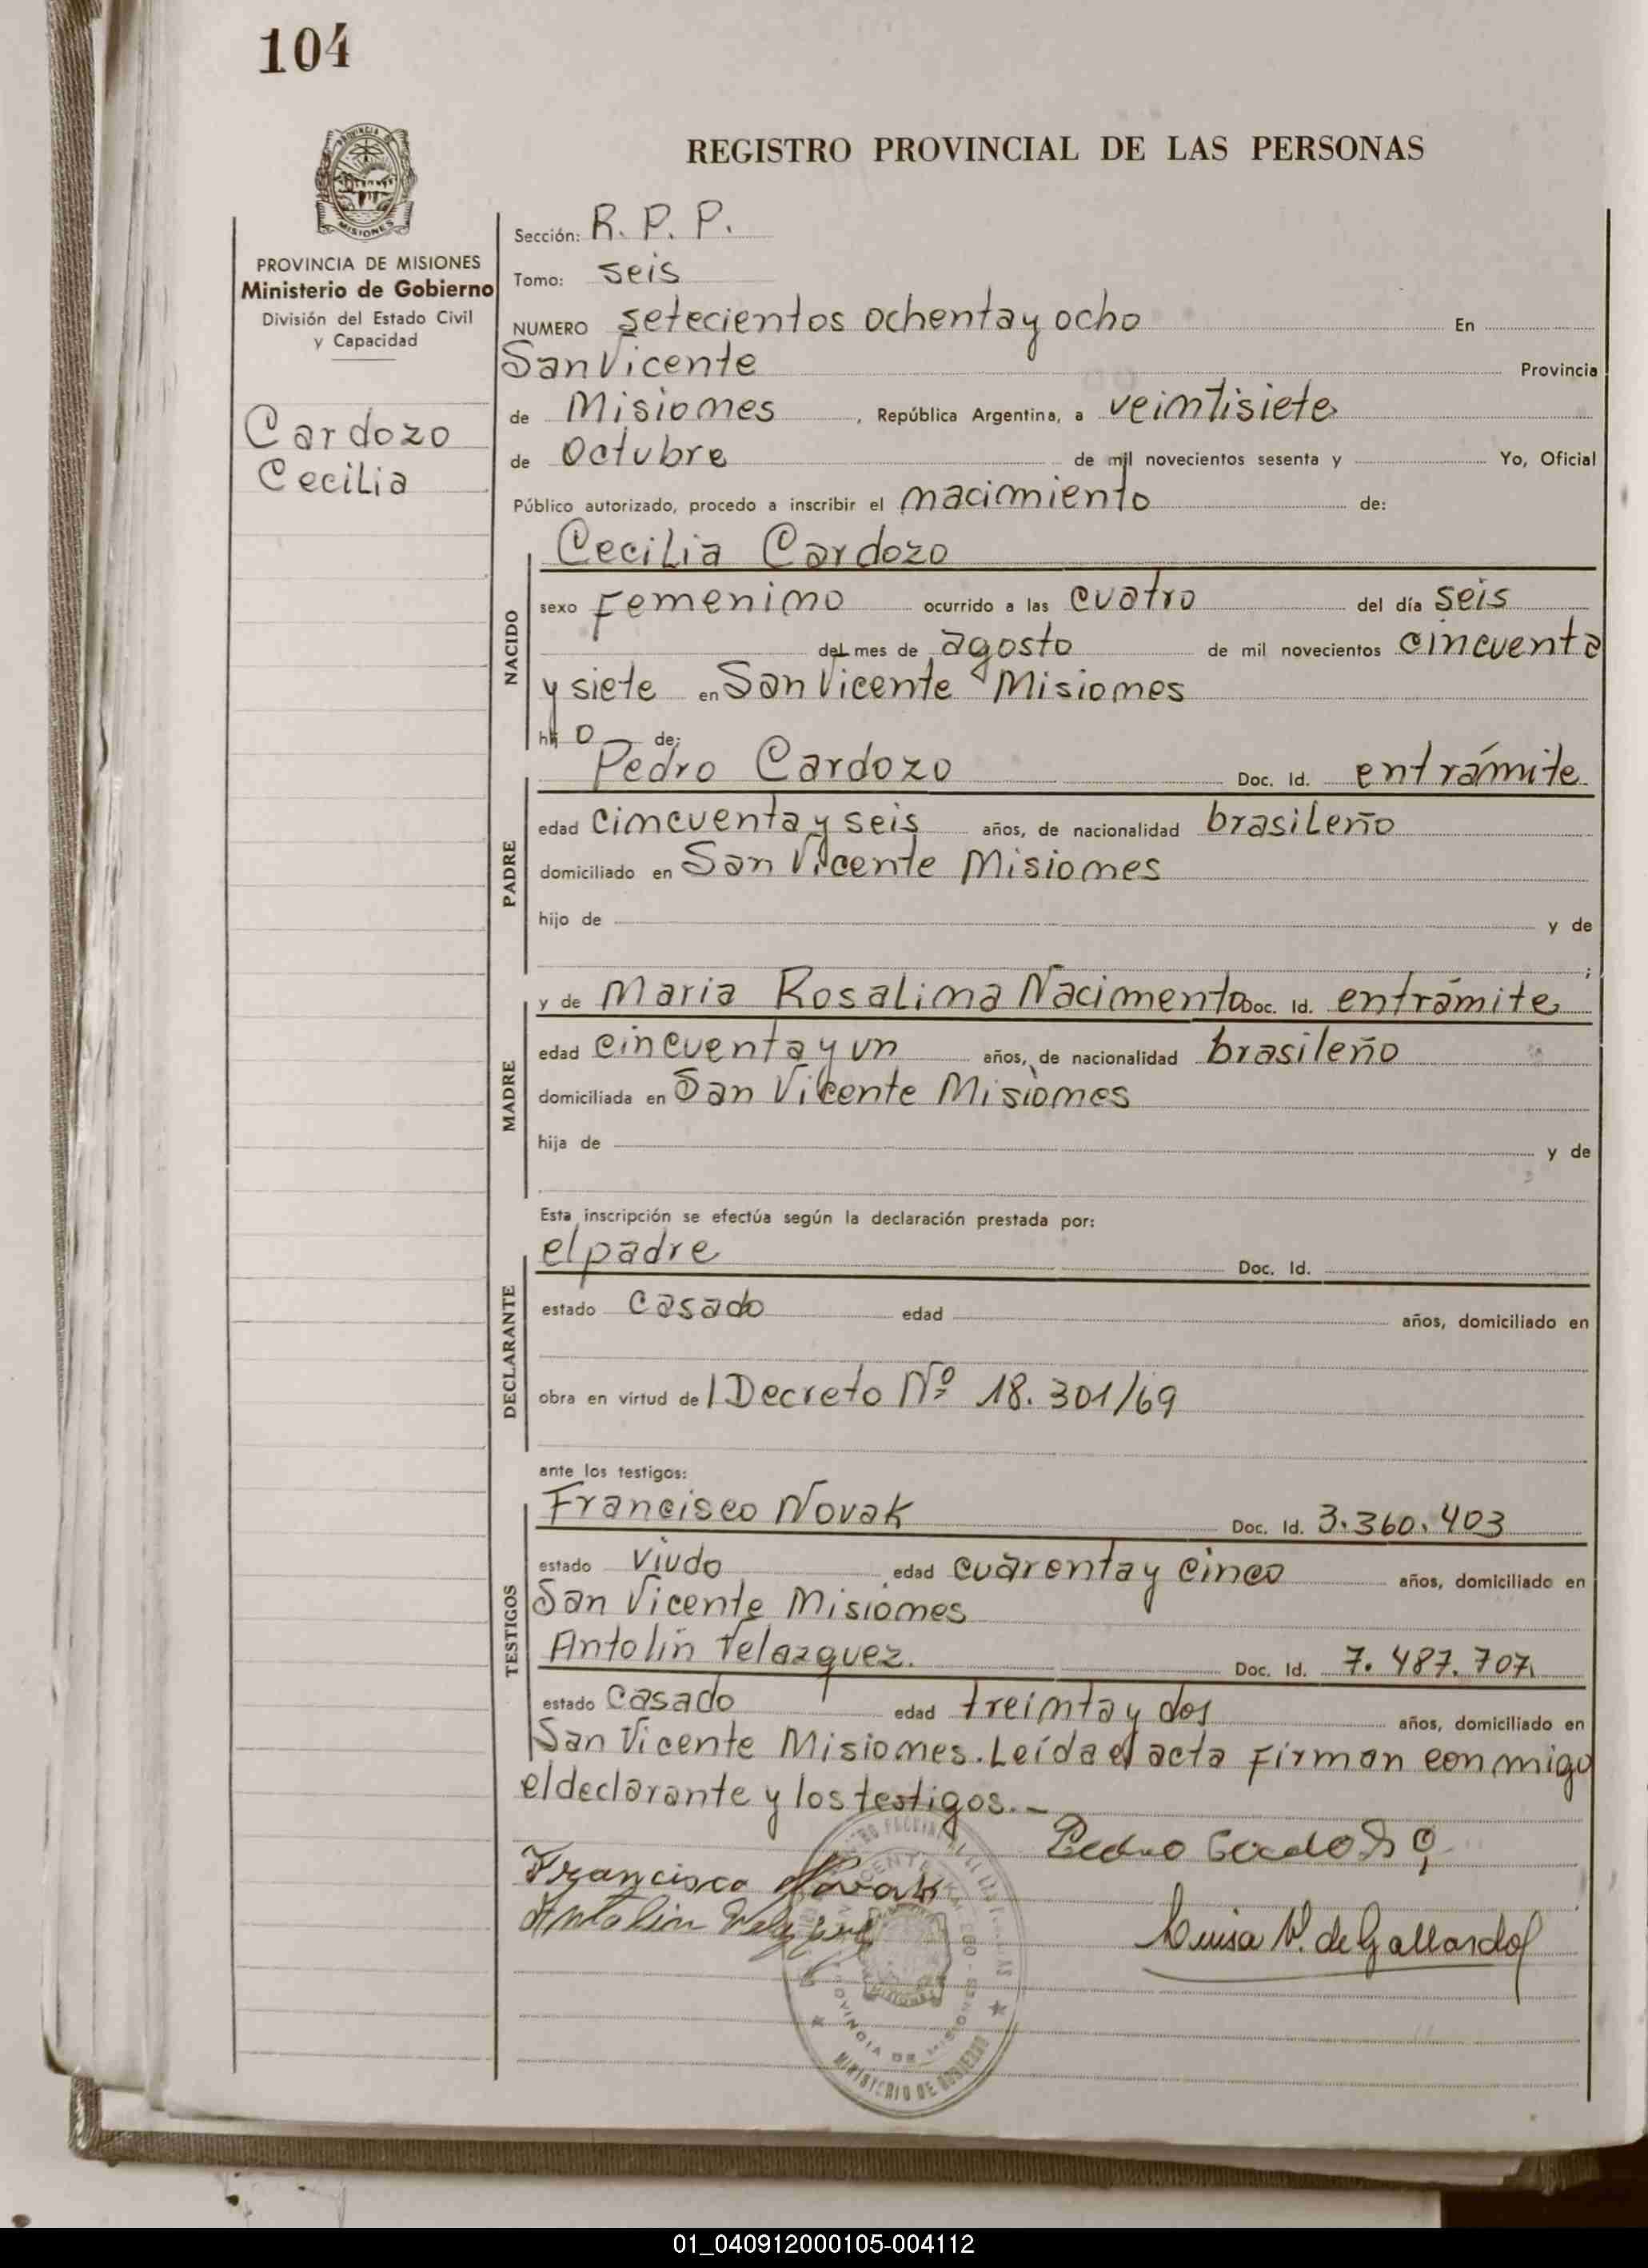 104
REGISTRO PROVINCIAL DE LAS PERSONAS
PROVINCIA DE MISIONES
Ministerio de Gobierno
División del Estado Civil
y Capacidad
Cardozo
Cecilia
Sección: R. P. P.
Tomo: seis
NUMERO setecientos ochenta y ocho En
San Vicente Provincia
de Misiones , República Argentina, a veintisiete
de Octubre de mil novecientos sesenta y Yo, Oficial
Público autorizado, procedo a inscribir el nacimiento de:
NACIDO
Cecilia Cardozo
sexo Femenino ocurrido a las cuatro del día seis
del mes de agosto de mil novecientos cincuenta
y siete en San Vicente Misiones
hij o de:
PADRE
Pedro Cardozo Doc. Id. entrámite
edad cincuenta y seis años, de nacionalidad brasileño
domiciliado en San Vicente Misiones
hijo de y de
;
MADRE
y de Maria Rosalina Nacimento Doc. Id. entrámite
edad cincuenta y un años, de nacionalidad brasileño
domiciliada en San Vicente Misiones
hija de y de
Esta inscripción se efectúa según la declaración prestada por:
DECLARANTE
el padre Doc. Id.
estado casado edad años, domiciliado en
obra en virtud de l Decreto Nº 18.301/69
ante los testigos:
TESTIGOS
Francisco Novak Doc. Id. 3.360.403
estado viudo edad cuarenta y cinco años, domiciliado en
San Vicente Misiones
Antolin Velazquez. Doc. Id. 7.487.707
estado casado edad treinta y dos años, domiciliado en
San Vicente Misiones. Leída el acta Firman conmigo
el declarante y los testigos.-
Pedro Cardozo
Francisco Novak
Antolin
Luisa V. de Gallardo
PROVINCIA DE MISIONES
MINISTERIO DE GOBIERNO
01_040912000105-004112